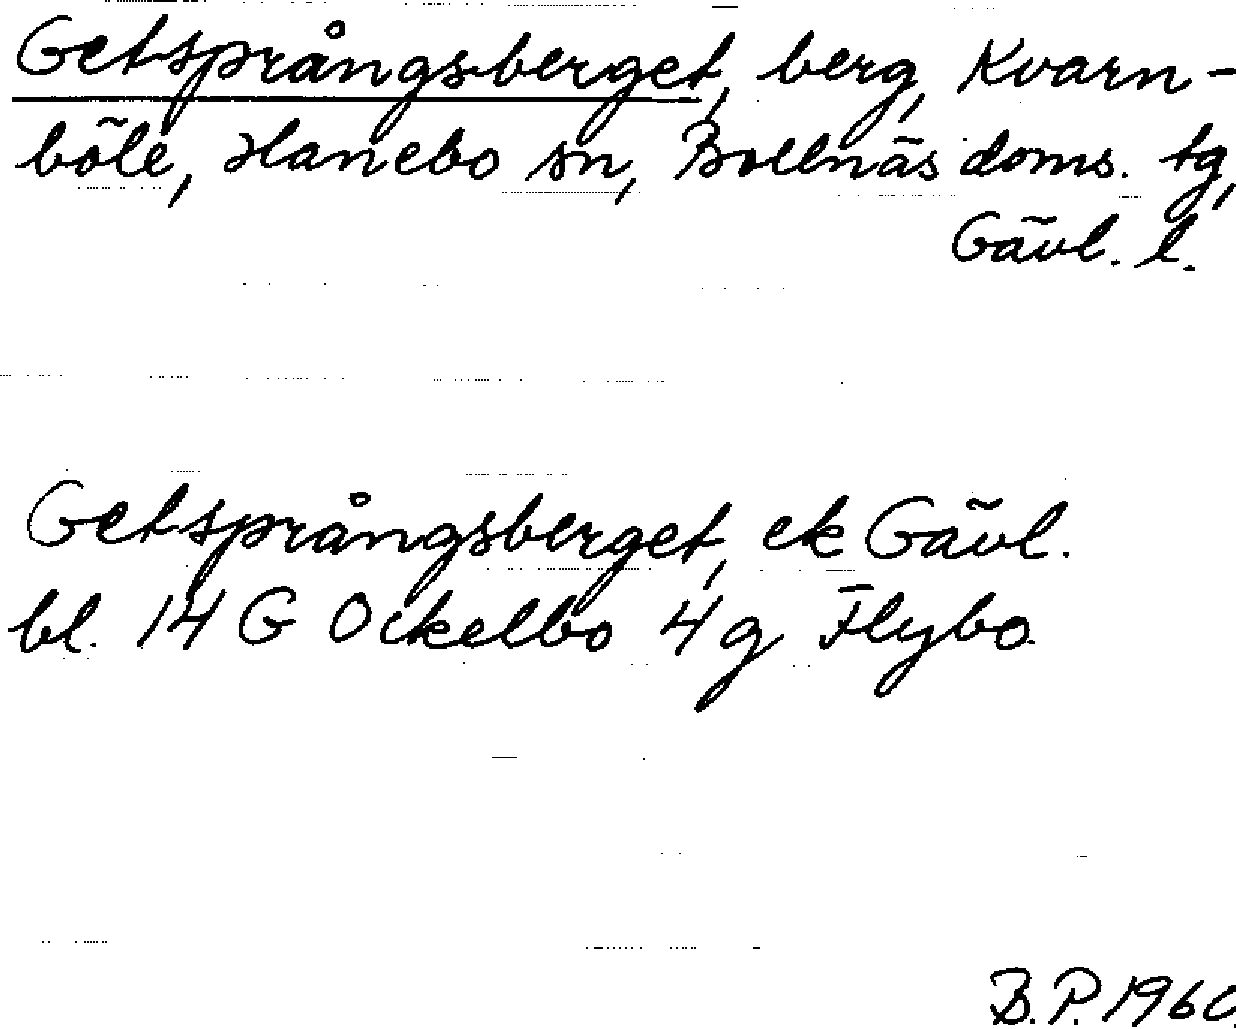 Getsprångsberget, berg, Kvarn-
böle, Hanebo sn, Bollnäs doms. tg,
Gävl. l.
Getsprångsberget, ek Gävl.
bl. 14 G Ockelbo 4 g Flybo
B.P. 1960.